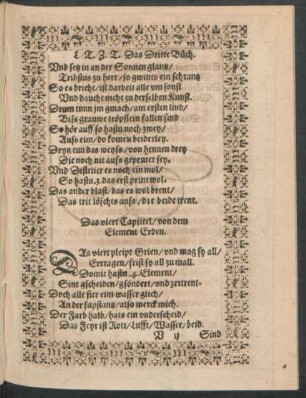 L. T. Z. T. Das Dritte Büch.
Vnd sey in an der Sonnen glantz/
Tröslus zu hert/so gwints ein schrantz
So es bricht/ist darbeit alle vm sonst
Vnd daucht nicht zu derselben Kunst.
Drum tunn jm gmach/am ersten lind/
Biß grauwe tröpflein fallen sind
So hör auff so hastu noch zwey/
Auß ein/do komen beiderley.
Dryn tun das weyß/von hennen drey
Die noch nit auß geprütet sey.
Vnd Destelier es noch ein mol/
So hastu.3. das erst print wol.
Das ander blast/das es wol brent/
Das trit löscht auß/die beide trent.
Das viert Capittel/von dem
Element Erden.
DAs viert pleipt Grien/vnd mag sy all/
Ertragen/frißt sy all zu mall.
Domit hastu .4. Element/
Sint gscheiden/gsöndert/vnd zertrent.
Doch alle sier eim wasser glich/
An der sapstantz/also merck mich.
Der Farb halb/hats ein vnderscheid/
Das Feyr ist Rott/Lufft/Wasser/beid.
V ij Sind